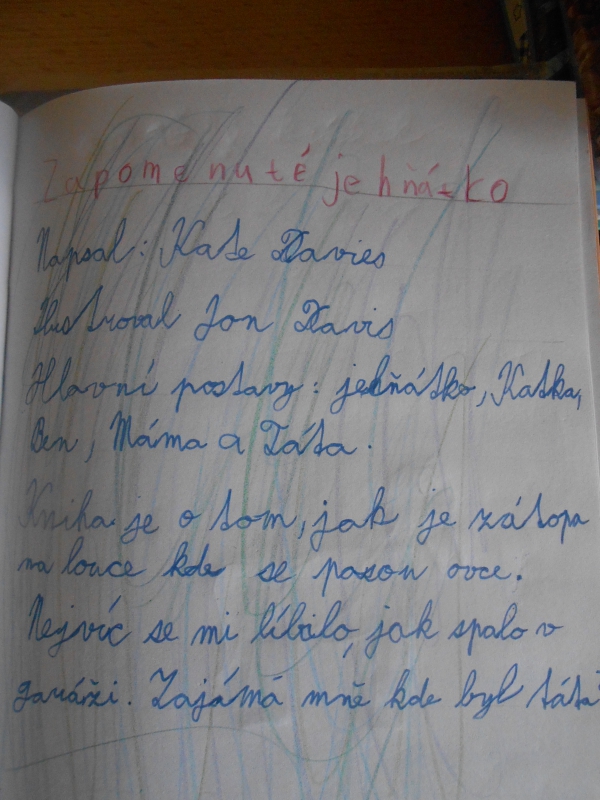 Zapomenuté jehňátko
Napsal: Kate Davies
Ilustroval Jon Davis
Hlavní postavy: jehňátko, Katka,
Ben, Máma a Táta.
Kniha je o tom, jak je zátopa
na louce kde se pasou ovce.
Nejvíc se mi líbilo, jak spalo v
garáži. Zajámá mně kde byl táta